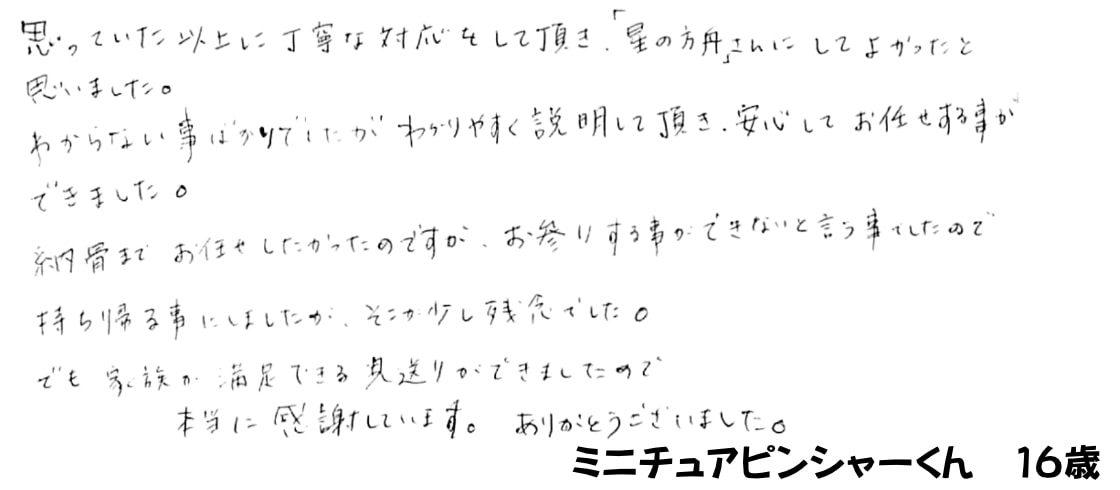 思っていた以上に丁寧な対応をして頂き、「星の方舟」さんにしてよかったと
思いました。
わからない事ばかりでしたがわかりやすく説明して頂き、安心してお任せする事が
できました。
納骨までお任せしたかったのですが、お参りする事ができないと言う事でしたので
持ち帰る事にしましたが、そこが少し残念でした。
でも家族が満足できる見送りができましたので
本当に感謝しています。ありがとうございました。
ミニチュアピンシャーくん　16歳